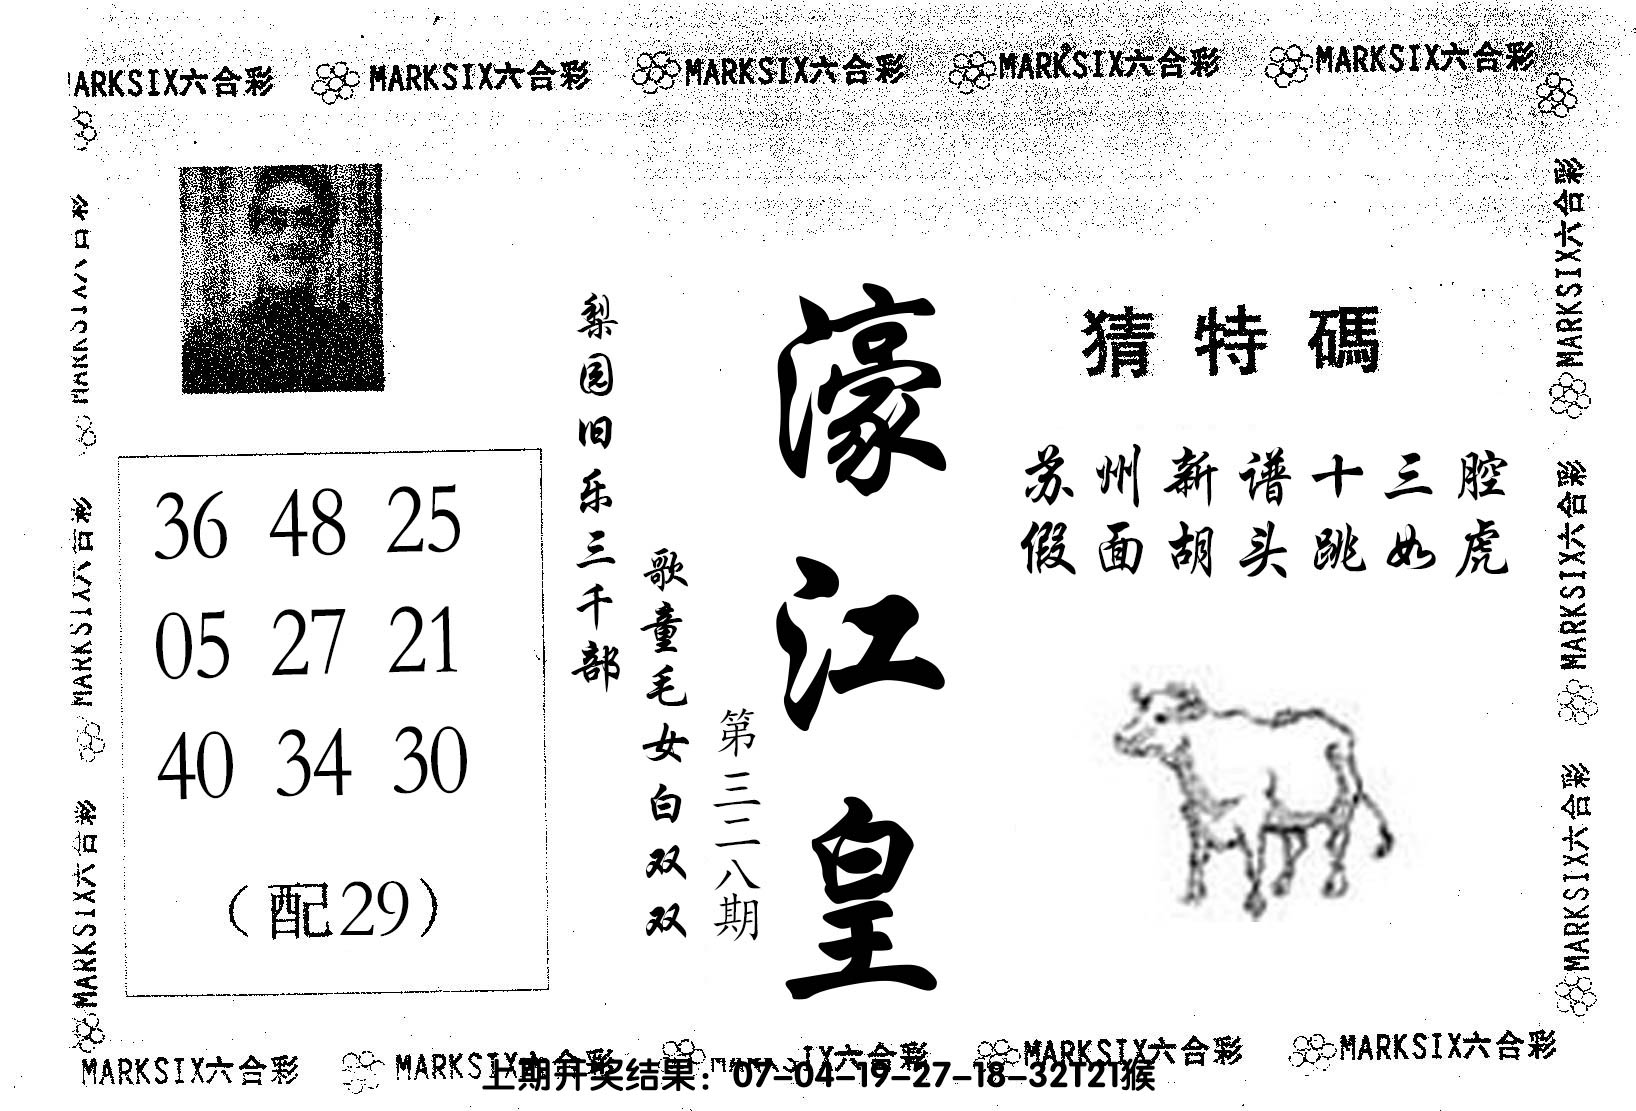 MARKSIX六合彩 MARKSIX六合彩 MARKSIX六合彩 MARKSIX六合彩 MARKSIX六合彩
猜特碼
苏州新谱十三腔
假面胡头跳如虎
濠江皇
第三二八期
梨园旧乐三千部
歌童毛女白双双
36 48 25
05 27 21
40 34 30
（配29）
MARKSIX六合彩
MARKSIX六合彩
MARKSIX六合彩
MARKSIX六合彩
MARKSIX六合彩
MARKSIX六合彩
MARKSIX六合彩 MARKSIX六合彩 IX六合彩 MARKSIX六合彩 MARKSIX六合彩
上期开奖结果：07-04-19-27-18-32T21猴